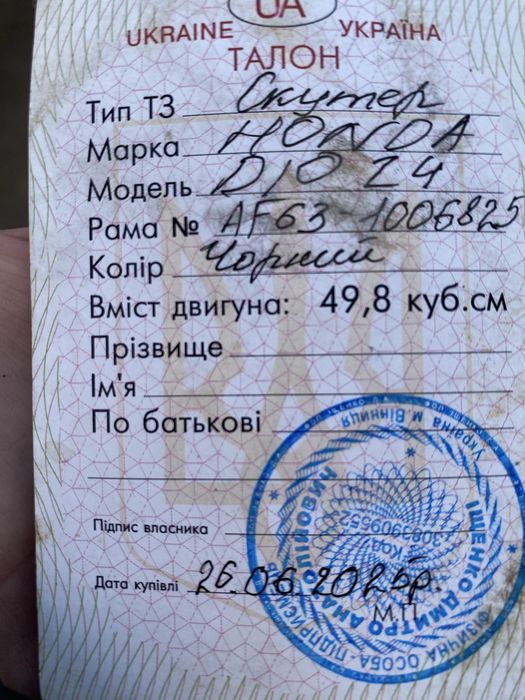 UA
UKRAINE УКРАЇНА
ТАЛОН
Тип ТЗ Скутер
Марка HONDA
Модель DIO Z4
Рама № AF63-1006825
Колір Чорний
Вміст двигуна: 49,8 куб.см
Прізвище
Ім'я
По батькові
Підпис власника
Дата купівлі 26.06.2025р.
М.П
Україна м. Вінниця
ФІЗИЧНА ОСОБА-ПІДПРИЄМЕЦЬ
ІЩЕНКО ДМИТРО
Код